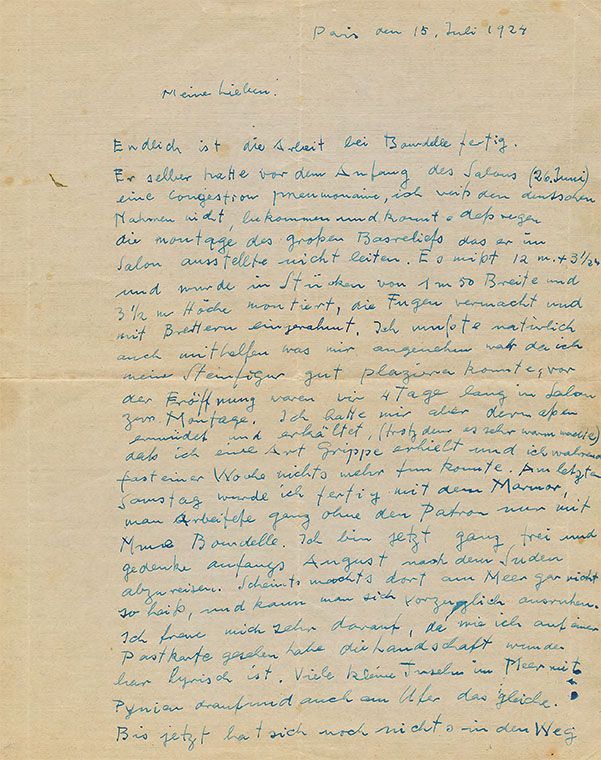 Paris den 15. Juli 1924
Meine Lieben!
Endlich ist die Arbeit bei Bourdelle fertig.
Er selber hatte vor dem Anfang des Salons (26. Juni)
eine Congestion pneumonaire, ich weiß den deutschen
Nahmen nicht, bekommen und konnte deßwegen
die montage des großen Basreliefs das er im
Salon ausstellte nicht leiten. Es mißt 12 m. + 3½
und wurde in Stücken von 1 m 50 Breite und
3½ m Höche montiert, die Fugen vermacht und
mit Brettern eingerahmt. Ich mußte natürlich
auch mithelfen was mir angenehm war da ich
meine Steinfigur gut plazieren konnte, vor
der Eröffnung waren wir 4 Tage lang im Salon
zur Montage. Ich hatte mir aber dermaßen
ermüdet und erkältet, (trotzdem es sehr warm machte)
daß ich eine Art Grippe erhielt und ich während
fast einer Woche nichts mehr tun konnte. Am letzten
Samstag wurde ich fertig mit dem Marmor,
man arbeitete ganz ohne den Patron nur mit
Mme Bourdelle. Ich bin jetzt ganz frei und
gedenke anfangs August nach dem Süden
abzureisen. Scheints machts dort am Meer gar nicht
so heiß, und kann man sich vorzüglich ausruhen.
Ich freue mich sehr darauf, da wie ich auf einer
Postkarte gesehen habe die Landschaft wunder
bar lyrisch ist. Viele kleine Inseln im Meer mit
Pynien drauf und auch am Ufer das gleiche.
Bis jetzt hat sich noch nichts in den Weg